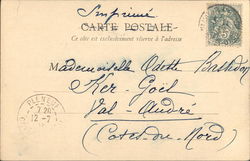 Imprimé
CARTE POSTALE
Ce côté est exclusivement réservé à l'adresse
Mademoiselle Odett
Ker-Goël
Val-André
(Côtes-du-Nord)
PLENEUF
7 20
12-7